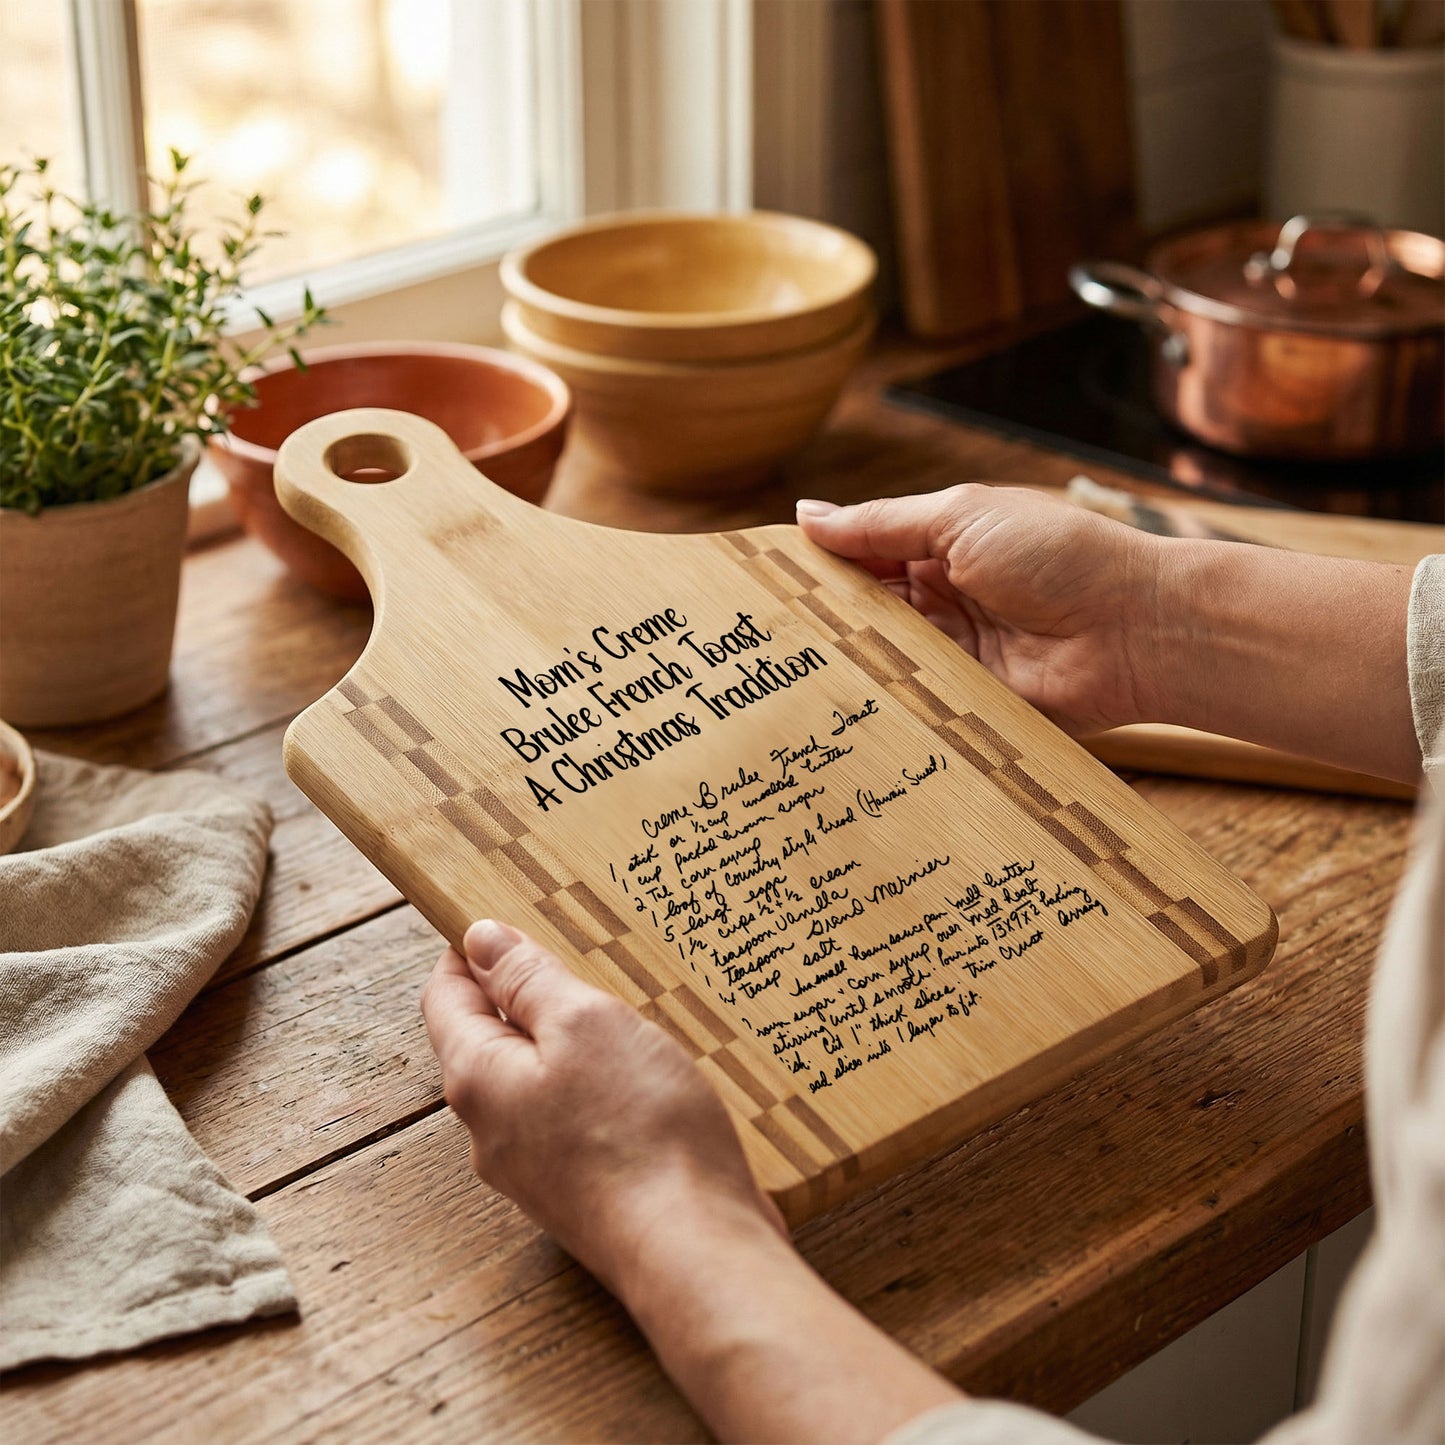 Mom's Creme
Brulee French Toast
A Christmas Tradition
Creme Brulee French Toast
1 stick or ½ cup unsalted butter
1 cup packed brown sugar
2 Tbl corn syrup
1 loaf of country style bread (Hawaii Sweet)
5 large eggs
1 ½ cups ½ + ½ cream
1 teaspoon vanilla
1 teaspoon Grand Marnier
¼ teasp salt
In small heavy sauce pan melt butter
rown sugar + corn syrup over med heat
stirring until smooth. Pour into 13x9x2 baking
ish. Cut 1" thick slices. trim crust arrang
ead slices into 1 layer to fit.